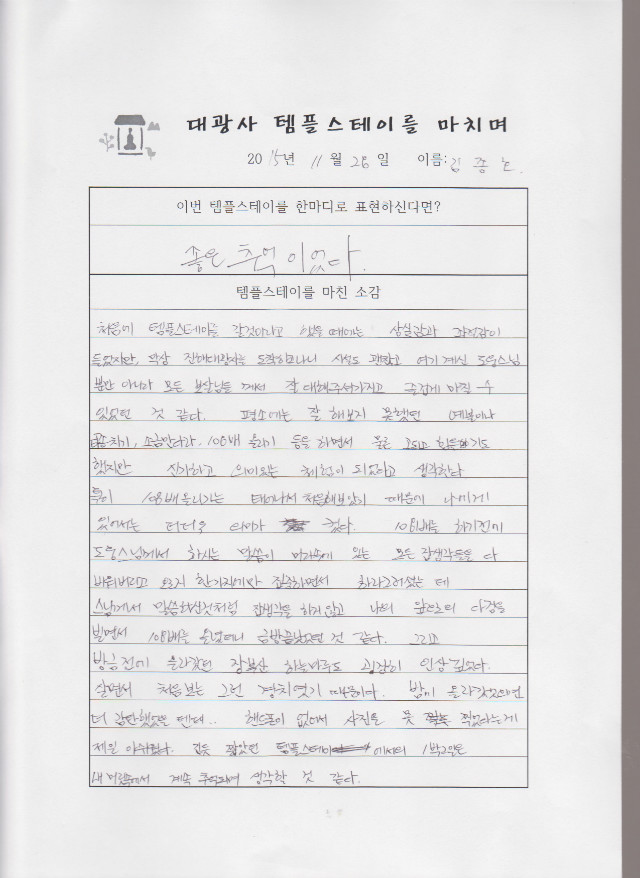 대광사 템플스테이를 마치며
2015년 11월 28일 이름: 김종
이번 템플스테이를 한마디로 표현하신다면?
좋은 추억이었다.
템플스테이를 마친 소감
처음에 템플스테이를 갈것이라고 했을 때에는 상실감과
들었지만, 막상 진해대광사를 도착하고나니 시설도 괜찮고 여기 계신 도영스님
뿐만 아니라 모든 보살님들 께서 잘 대해주셔가지고 즐겁게 마칠 수
있었던 것 같다. 평소에는 잘 해보지 못했던 예불이나
소금만다라, 108배 올리기 등을 하면서 몸은 고되고 힘들기도
했지만 신기하고 의미있는 체험이 되었다고 생각한다
특히 108배 올리기는 태어나서 처음해보았기 때문에 나에게
있어서는 더더욱 의미가 컸다. 108배를 하기전에
도영스님께서 하시는 말씀이 머리속에 있는 모든 잡생각들을 다
비워버리고 오로지 한가지에만 집중하면서 하라고하셨는 데
스님께서 말씀하신것처럼 잡생각을 하지않고 나의 앞으로의 다짐을
빌면서 108배를 올렸더니 금방끝났던 것 같다. 그리고
방금전에 올라갔던 장복산 하늘마루도 굉장히 인상 깊었다.
살면서 처음보는 그런 경치였기 때문이다. 밤에 올라갔었다면
더 감탄했었을 텐데.. 핸드폰이 없어서 사진을 못 찍었다는게
제일 아쉬웠다. 짧았던 템플스테이 에서의 1박2일은
내 머릿속에서 계속 생각할 것 같다.